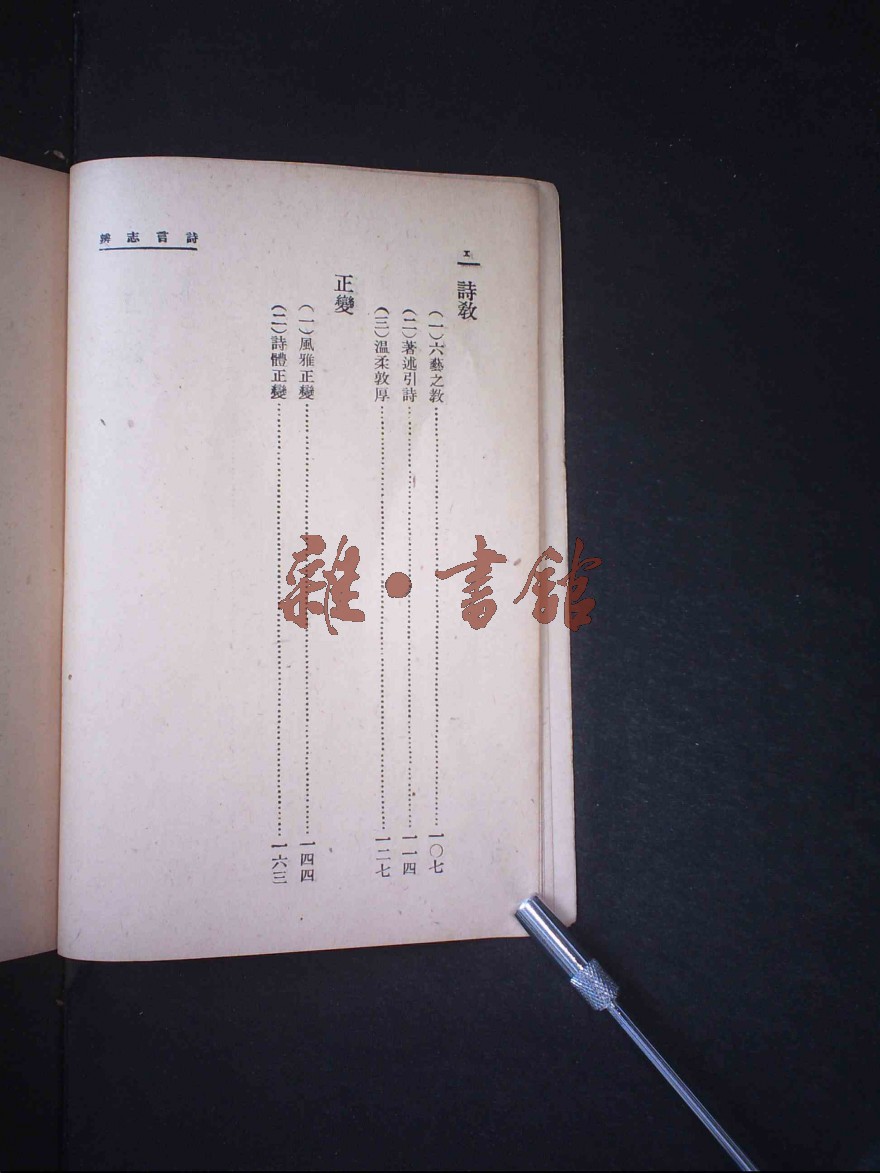 詩言志辨
詩敎
（一）六藝之敎………一〇七
（二）著述引詩………一一四
（三）溫柔敦厚………一二七
正變
（一）風雅正變………一四四
（二）詩體正變………一六三
雜·書館